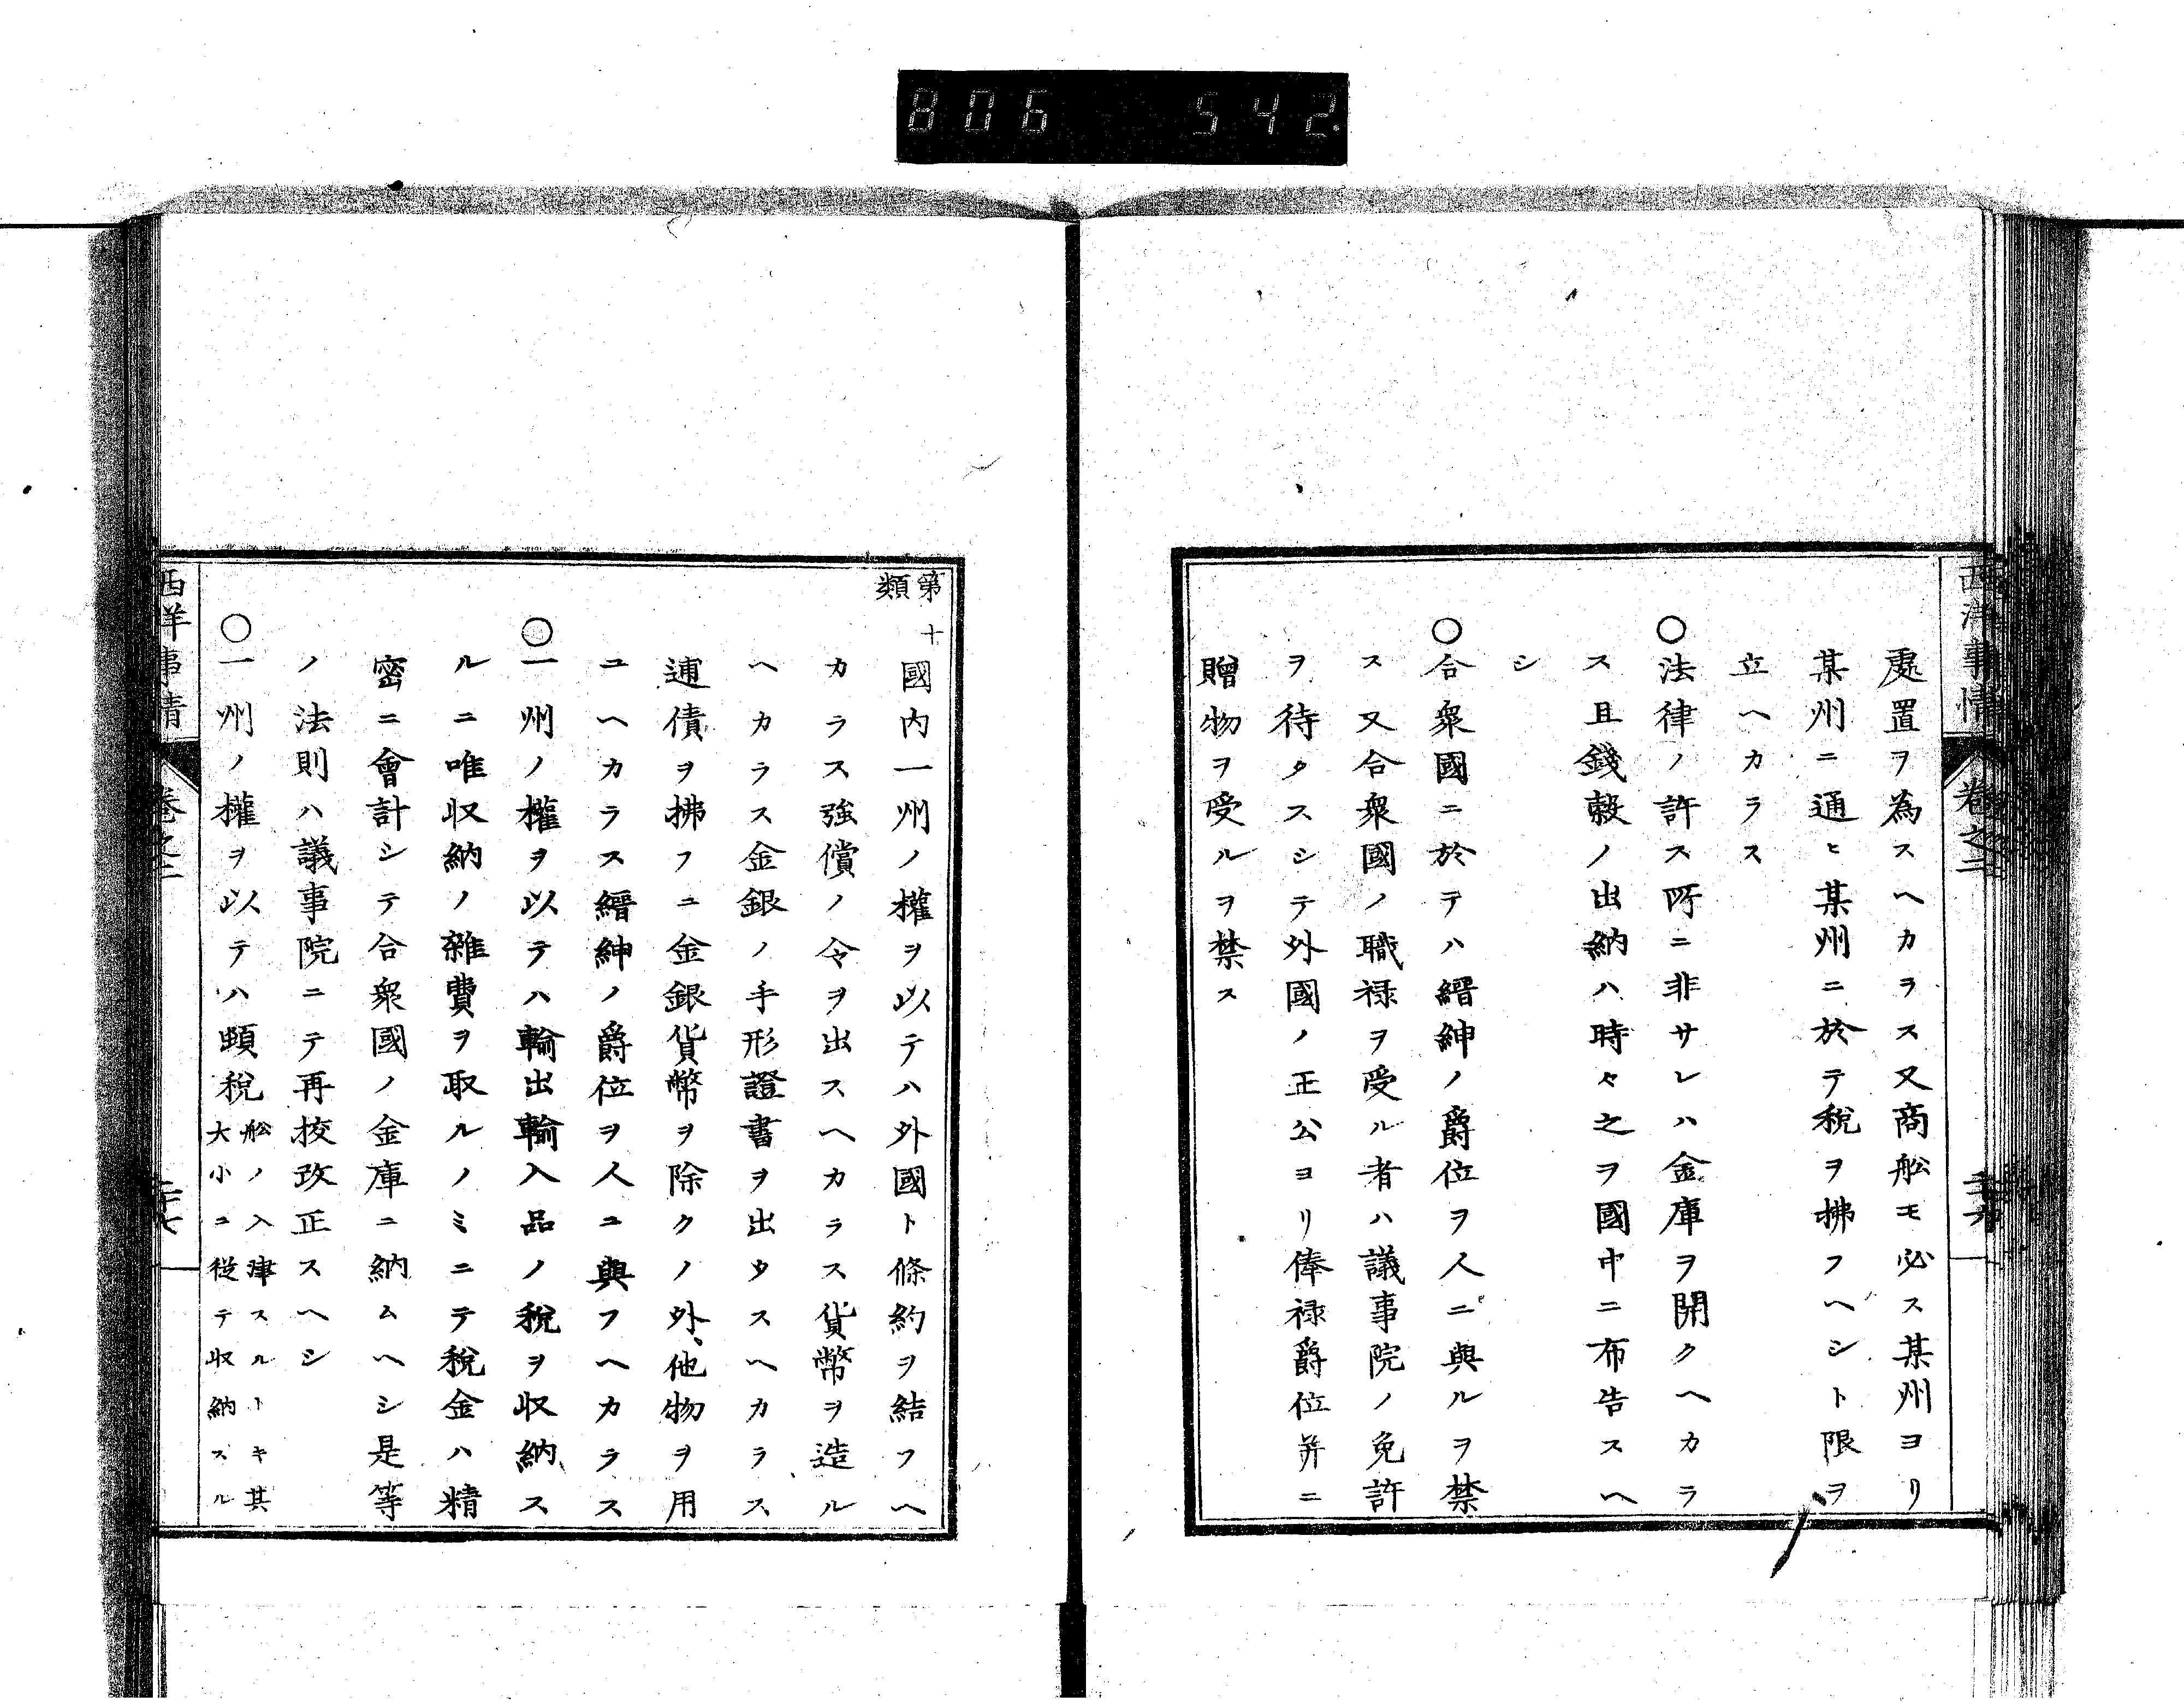 806 542.
西洋事情 卷之二
處置ヲ為スヘカラス又商舩モ必ス某州ヨリ
某州ニ通ヒ某州ニ於テ稅ヲ拂フヘシト限ヲ
立ヘカラス
○法律ノ許ス所ニ非サレハ金庫ヲ開クヘカラ
ス且錢穀ノ出納ハ時々之ヲ國中ニ布告スヘ
シ
○合衆國ニ於テハ縉紳ノ爵位ヲ人ニ與ルヲ禁
ス又合衆國ノ職祿ヲ受ル者ハ議事院ノ免許
ヲ待タスシテ外國ノ正公ヨリ俸祿爵位并ニ
贈物ヲ受ルヲ禁ス
第十
類
國內一州ノ權ヲ以テハ外國ト條約ヲ結フヘ
カラス強償ノ令ヲ出スヘカラス貨幣ヲ造ル
ヘカラス金銀ノ手形證書ヲ出タスヘカラス
逋債ヲ拂フニ金銀貨幣ヲ除クノ外、他物ヲ用
ユヘカラス縉紳ノ爵位ヲ人ニ與フヘカラス
○一州ノ權ヲ以テハ輸出輸入品ノ稅ヲ収納ス
ルニ唯収納ノ雜費ヲ取ルノミニテ稅金ハ精
密ニ會計シテ合衆國ノ金庫ニ納ムヘシ是等
ノ法則ハ議事院ニテ再挍改正スヘシ
○一州ノ權ヲ以テハ頓稅
舩ノ入津スルトキ其
大小ニ従テ収納スル
西洋事情 卷之二